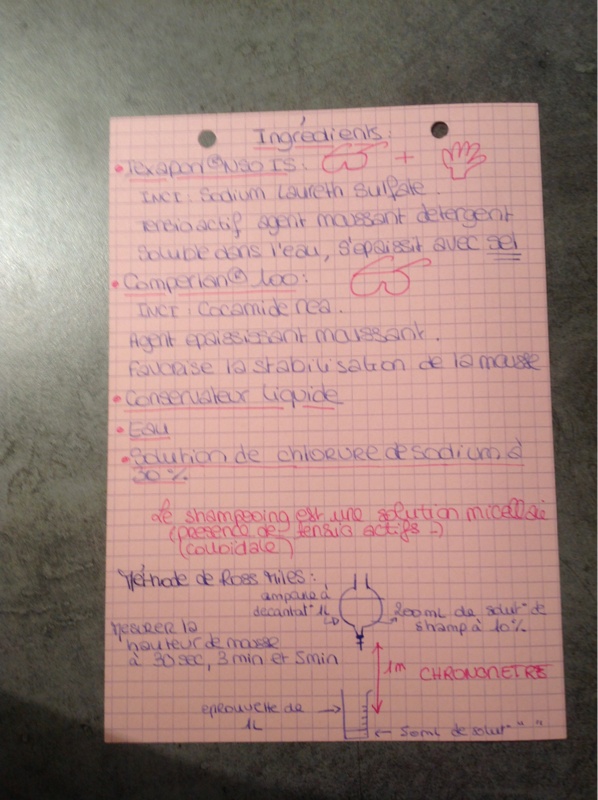 Ingrédients:
• Texapon® NSO IS: +
INCI: Sodium Laureth Sulfate.
Tensioactif agent moussant détergent
Soluble dans l'eau, s'épaissit avec sel
• Comperlan® 100:
INCI: Cocamide mea.
Agent épaississant moussant.
Favorise la stabilisation de la mousse
• Conservateur liquide
• Eau
• Solution de chlorure de sodium à
30 %
Le shampooing est une solution micellaire
(présence de tensio actifs -)
(colloïdale)
Méthode de Ross Miles:
ampoule à
décantat° 1L
200mL de solut° de
shamp à 10%
Mesurer la
hauteur de mousse
à 30 sec, 3 min et 5min
1m CHRONOMETRE
eprouvette de
1L
50mL de solut° " "